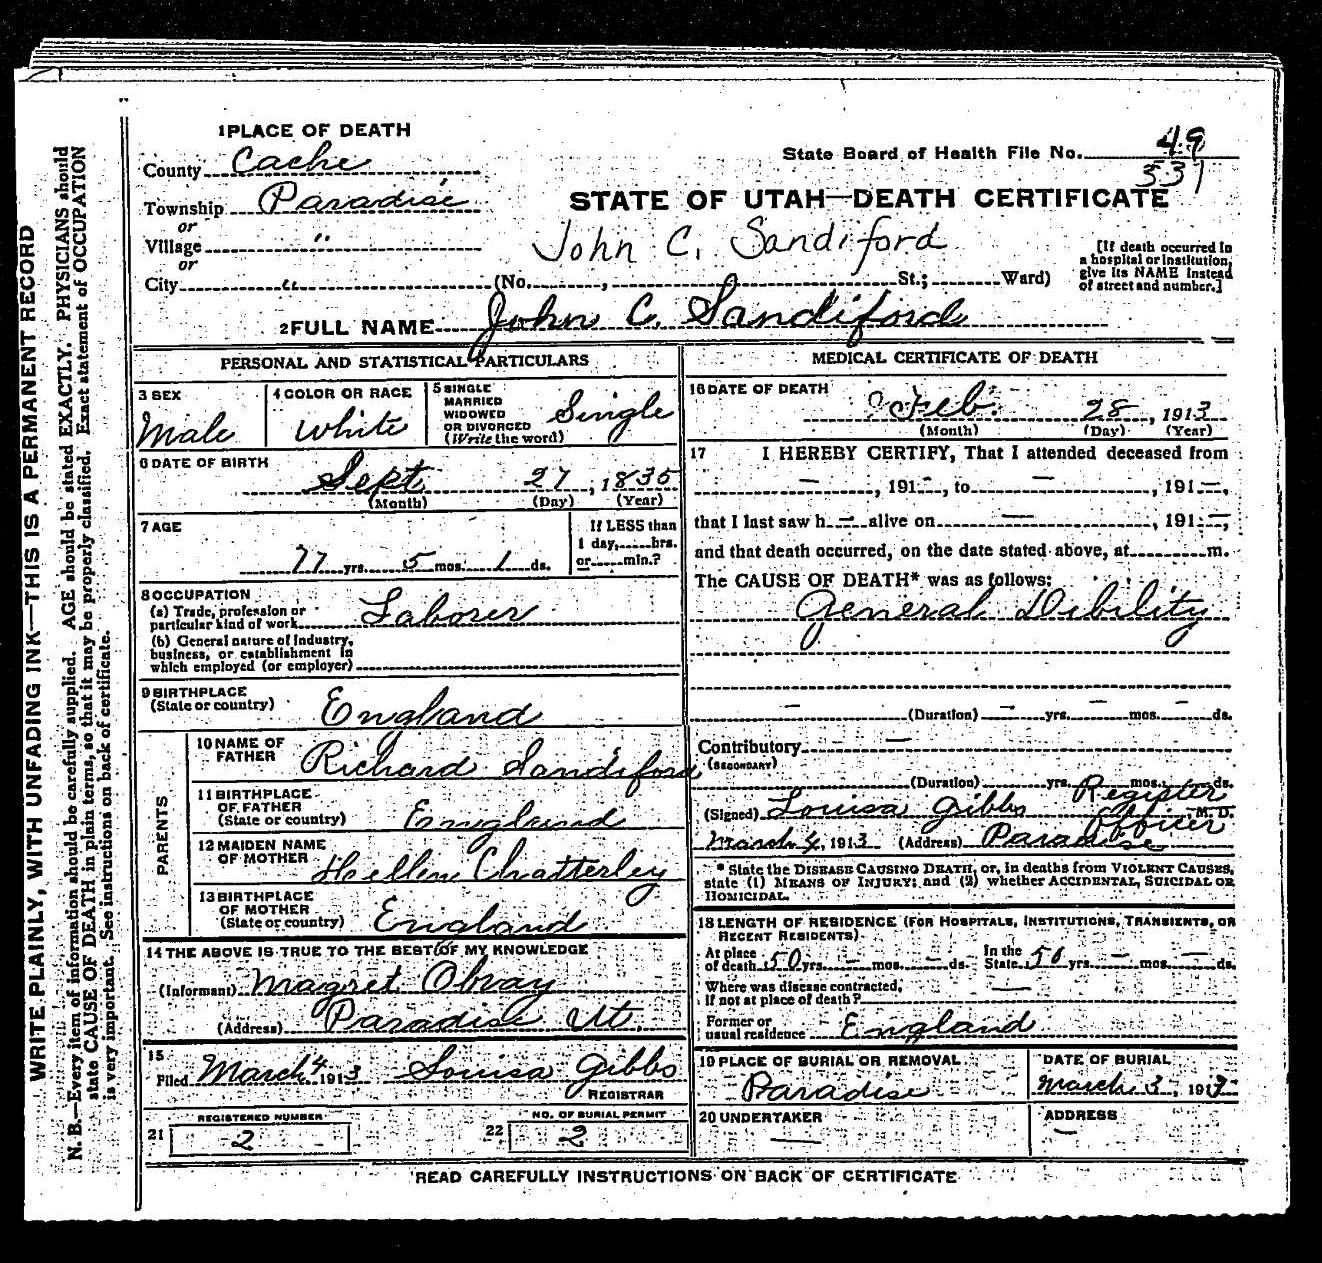 1 PLACE OF DEATH
County Cache
Township Paradise
or
Village "
or
City "
(No. , St.; Ward)
State Board of Health File No. 49
331
STATE OF UTAH—DEATH CERTIFICATE
John C. Sandiford
[If death occurred in
a hospital or institution,
give its NAME instead
of street and number.]
2 FULL NAME John C. Sandiford
PERSONAL AND STATISTICAL PARTICULARS
3 SEX
Male
4 COLOR OR RACE
White
5 SINGLE
MARRIED
WIDOWED
OR DIVORCED
(Write the word)
Single
6 DATE OF BIRTH
Sept 27, 1835
(Month) (Day) (Year)
7 AGE
77 yrs. 5 mos. 1 ds.
If LESS than
1 day, hrs.
or min.?
8 OCCUPATION
(a) Trade, profession or
particular kind of work Laborer
(b) General nature of industry,
business, or establishment in
which employed (or employer)
9 BIRTHPLACE
(State or country) England
PARENTS
10 NAME OF
FATHER Richard Sandiford
11 BIRTHPLACE
OF FATHER
(State or country) England
12 MAIDEN NAME
OF MOTHER Hoellen Chatterley
13 BIRTHPLACE
OF MOTHER
(State or country) England
14 THE ABOVE IS TRUE TO THE BEST OF MY KNOWLEDGE
(Informant) Magret Obray
(Address) Paradise Ut.
15
Filed March 4 1913 Louisa Gibbs
REGISTRAR
REGISTERED NUMBER
21 2
NO. OF BURIAL PERMIT
22 2
MEDICAL CERTIFICATE OF DEATH
16 DATE OF DEATH
Feb. 28, 1913
(Month) (Day) (Year)
17 I HEREBY CERTIFY, That I attended deceased from
—, 191—, to —, 191—,
that I last saw h — alive on —, 191—,
and that death occurred, on the date stated above, at m.
The CAUSE OF DEATH* was as follows:
General Dibility
— (Duration) — yrs. — mos. — ds.
Contributory —
(SECONDARY)
(Duration) yrs. mos. ds.
(Signed) Louisa Gibbs Register M. D.
Officer
March 4, 1913 (Address) Paradise
* State the DISEASE CAUSING DEATH, or, in deaths from VIOLENT CAUSES,
state (1) MEANS OF INJURY; and (2) whether ACCIDENTAL, SUICIDAL OR
HOMICIDAL.
18 LENGTH OF RESIDENCE (FOR HOSPITALS, INSTITUTIONS, TRANSIENTS, OR
RECENT RESIDENTS)
At place
of death 50 yrs. — mos. — ds.
In the
State 50 yrs. — mos. — ds.
Where was disease contracted,
if not at place of death? —
Former or
usual residence England
19 PLACE OF BURIAL OR REMOVAL
Paradise
DATE OF BURIAL
March 3, 1913
20 UNDERTAKER
—
ADDRESS
—
READ CAREFULLY INSTRUCTIONS ON BACK OF CERTIFICATE
WRITE PLAINLY, WITH UNFADING INK—THIS IS A PERMANENT RECORD
N. B.—Every item of information should be carefully supplied. AGE should be stated EXACTLY. PHYSICIANS should
state CAUSE OF DEATH in plain terms, so that it may be properly classified. Exact statement of OCCUPATION
is very important. See instructions on back of certificate.